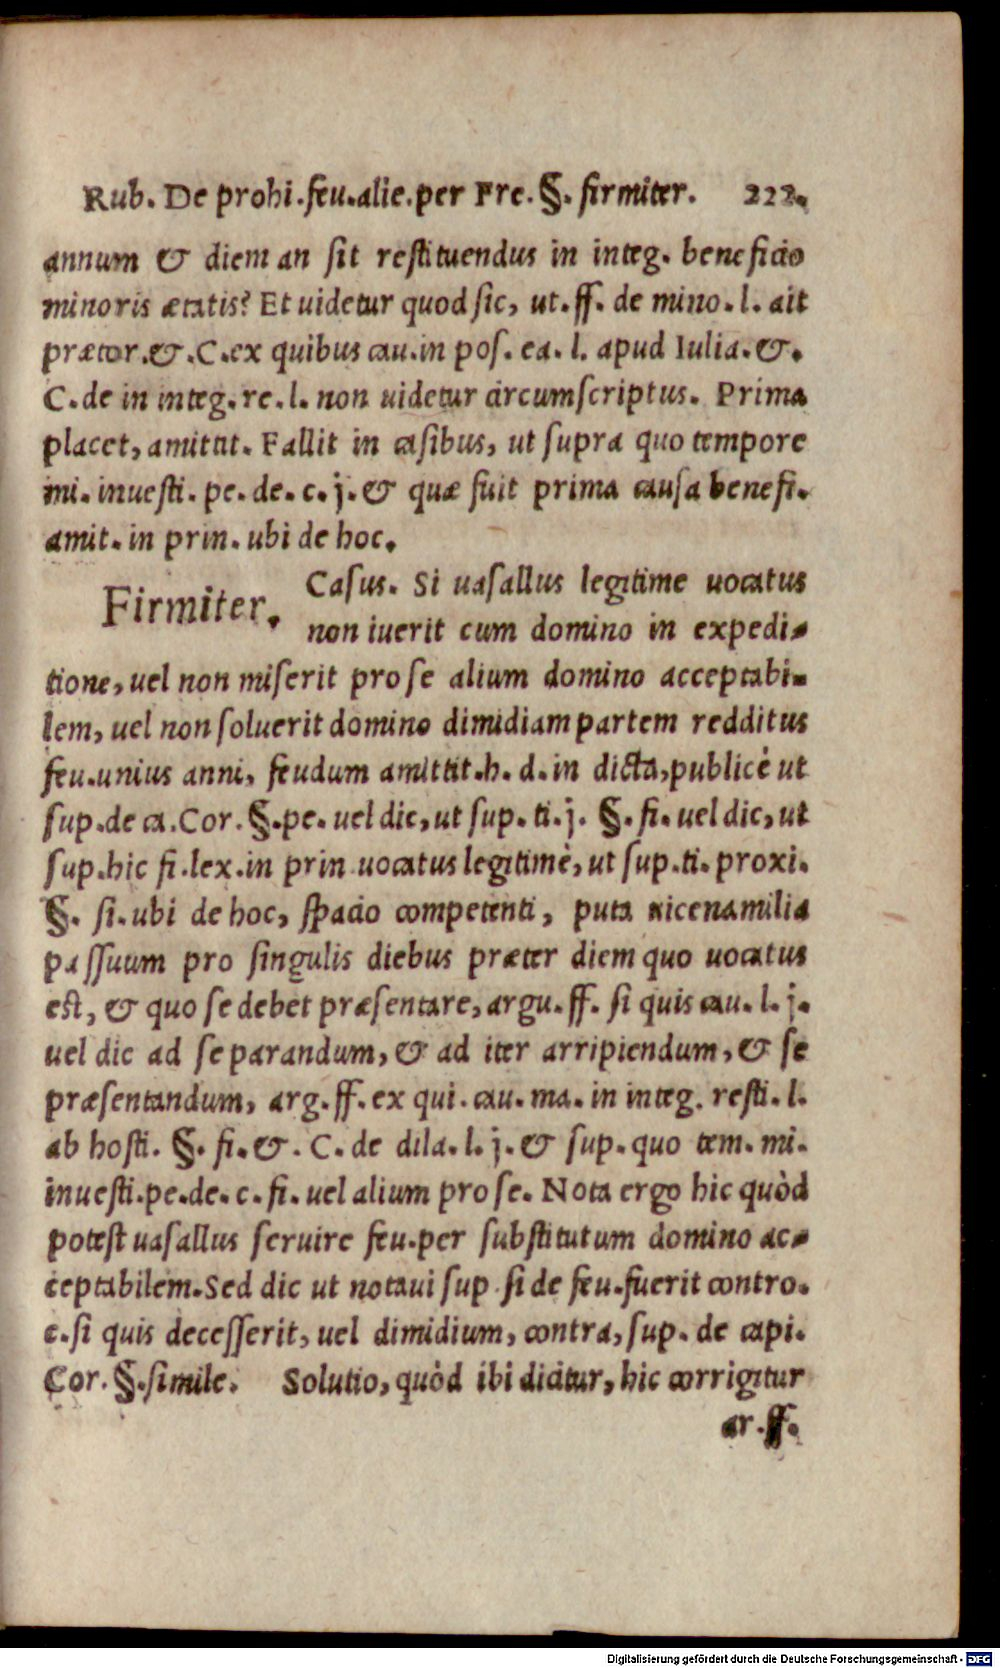 Rub. De prohi.feu.alie.per Fre. §. firmiter. 222.
annum & diem an sit restituendus in integ. beneficio
minoris ætatis? Et uidetur quod sic, ut.ff. de mino.l. ait
prætor.&.C.ex quibus cau.in pos. ea. l. apud Iulia.&.
C.de in integ.re.l. non uidetur circumscriptus. Prima
placet, amittit. Fallit in casibus, ut supra quo tempore
mi. inuesti. pe. de. c. j. & quæ fuit prima causa benefi.
amit. in prin. ubi de hoc.
Firmiter. Casus. Si uasallus legitime uocatus
non iuerit cum domino in expedi-
tione, uel non miserit pro se alium domino acceptabi-
lem, uel non soluerit domino dimidiam partem redditus
feu.unius anni, feudum amittit.h. d.in dicta,publicè ut
sup.de ca.Cor.§.pe. uel dic, ut sup. ti. j. §. fi. uel dic, ut
sup.hic fi.lex.in prin uocatus legitimè, ut sup.ti. proxi.
§. si. ubi de hoc, spacio competenti, puta uicena milia
passuum pro singulis diebus præter diem quo uocatus
est, & quo se debet præsentare, argu. ff. si quis cau. l. j.
uel dic ad separandum, & ad iter arripiendum, & se
præsentandum, arg.ff.ex qui.cau.ma.in integ. resti.l.
ab hosti. §. fi.&. C. de dila. l. j. & sup. quo tem. mi.
inuesti.pe.de.c.fi. uel alium pro se. Nota ergo hic quòd
potest uasallus seruire feu.per substitutum domino ac-
ceptabilem.Sed dic ut notaui sup si de feu.fuerit contro.
c.si quis decesserit, uel dimidium, contra, sup. de capi.
Cor.§.simile. Solutio, quòd ibi dicitur, hic corrigitur
ar.ff.
Digitalisierung gefördert durch die Deutsche Forschungsgemeinschaft - DFG